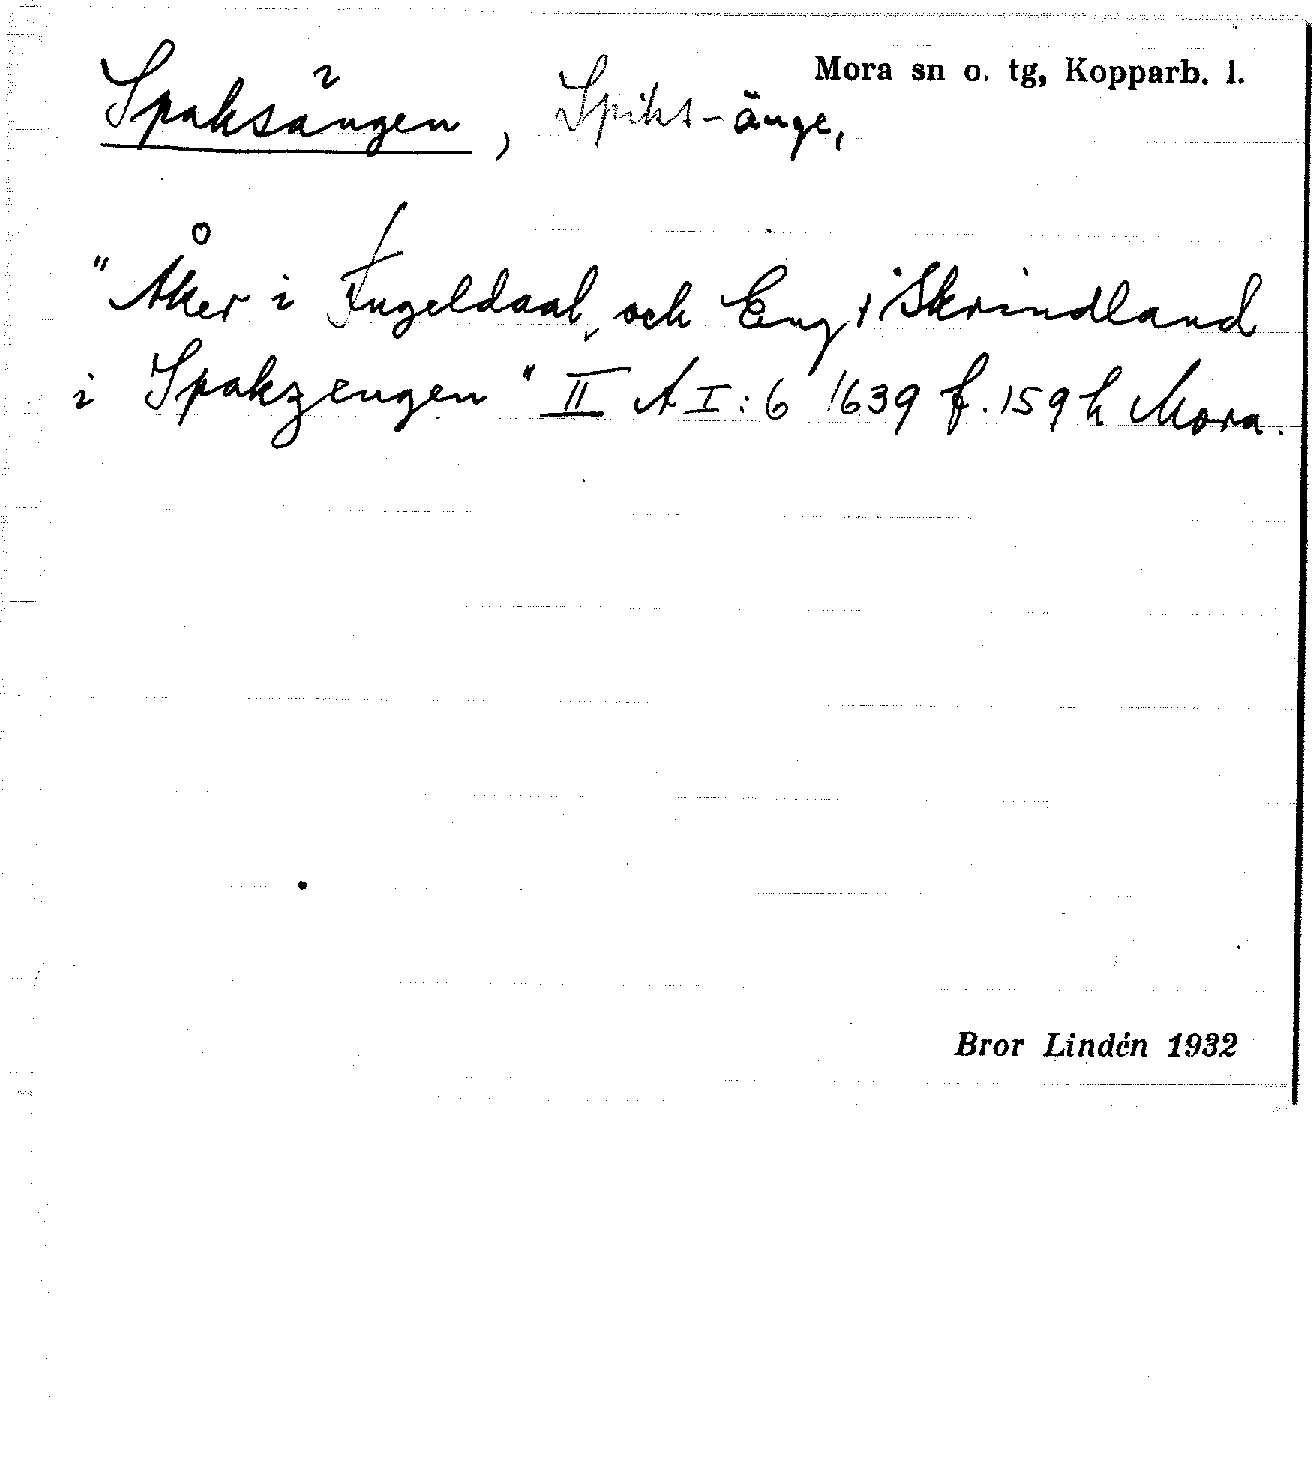 Mora sn o. tg, Kopparb. l.
Spaksängen, Spiks-änge,
"Åker i Fugeldaal, och Eng i Skrindland
i Spakzengen" II A I:6 1639 f. 159 h Mora.
Bror Lindén 1932